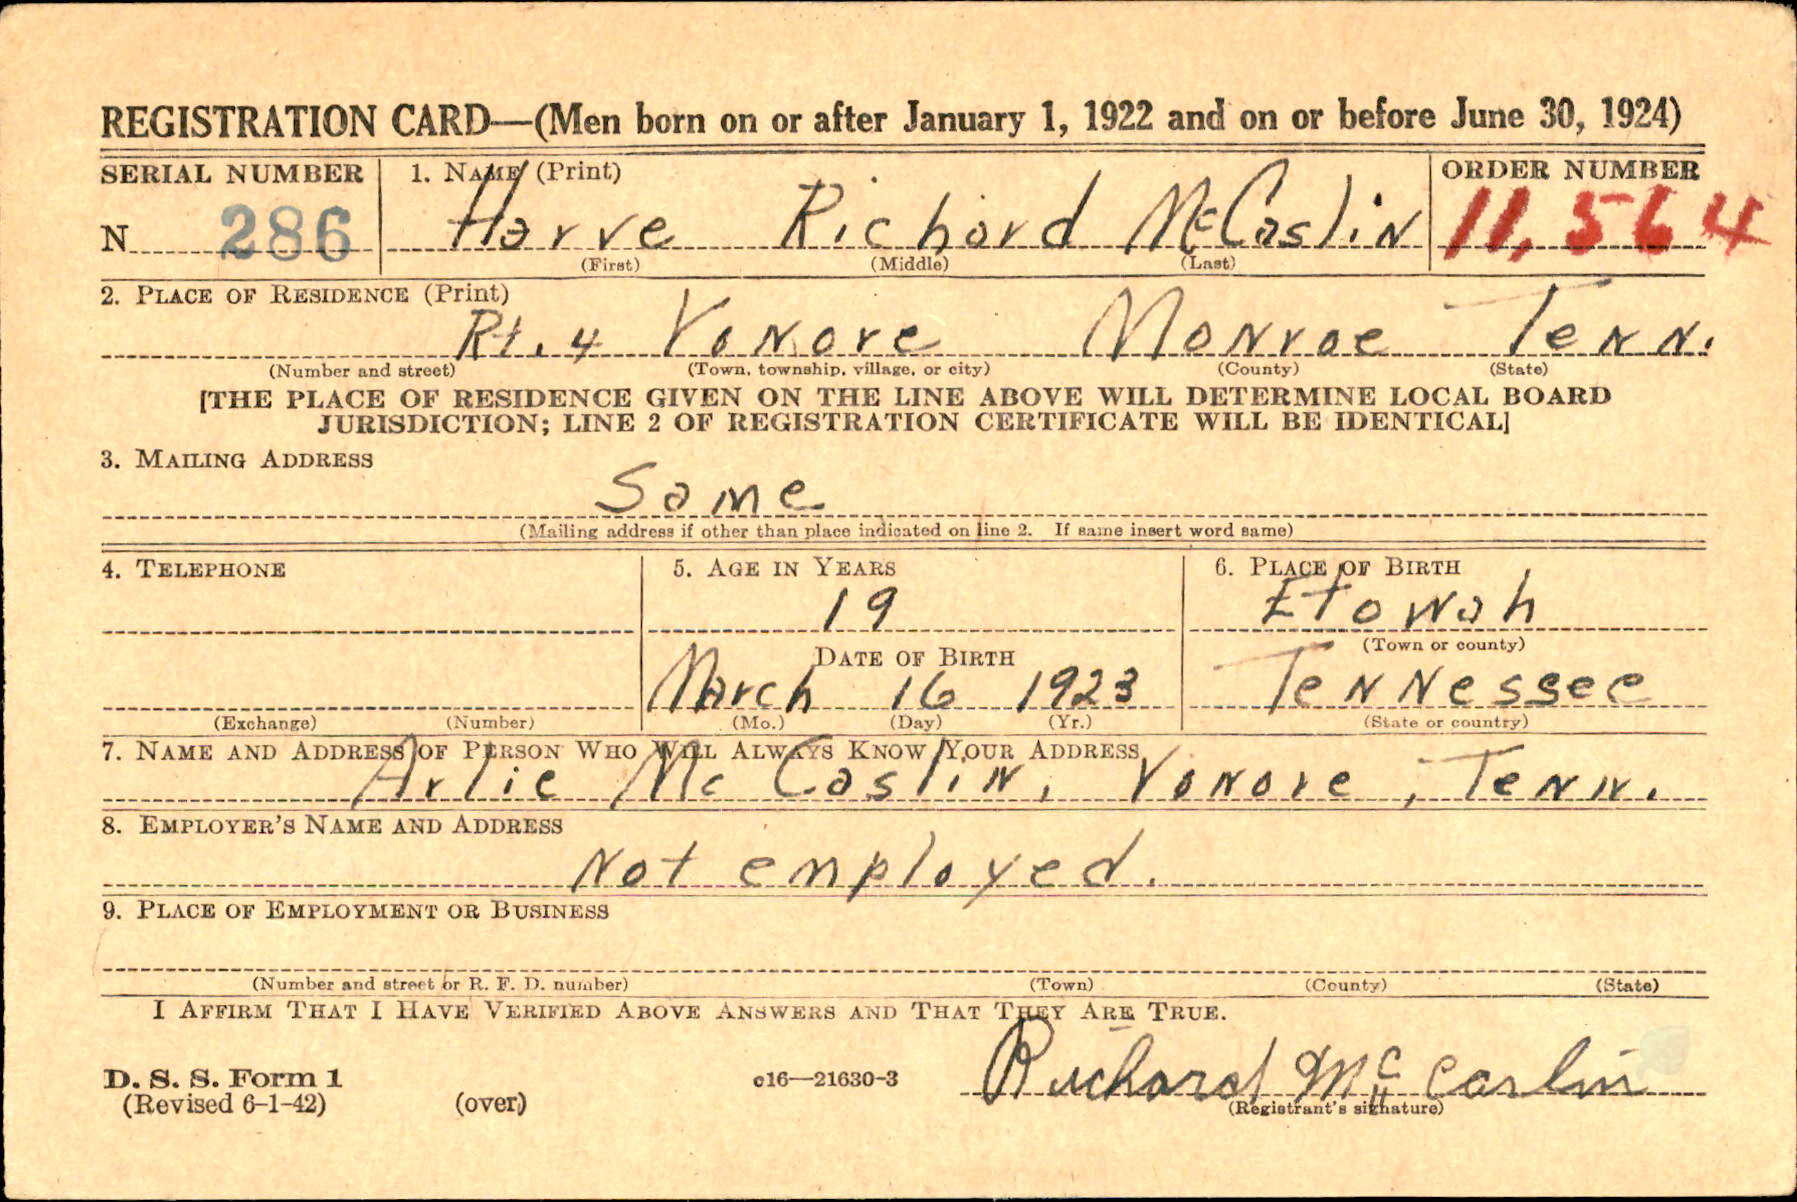 REGISTRATION CARD—(Men born on or after January 1, 1922 and on or before June 30, 1924)
SERIAL NUMBER 1. NAME (Print) ORDER NUMBER
N 286 Harve Richard McCaslin 11,564
(First) (Middle) (Last)
2. PLACE OF RESIDENCE (Print)
Rt. 4 Vonore Monroe Tenn.
(Number and street) (Town, township, village, or city) (County) (State)
[THE PLACE OF RESIDENCE GIVEN ON THE LINE ABOVE WILL DETERMINE LOCAL BOARD
JURISDICTION; LINE 2 OF REGISTRATION CERTIFICATE WILL BE IDENTICAL]
3. MAILING ADDRESS
Same
(Mailing address if other than place indicated on line 2. If same insert word same)
4. TELEPHONE 5. AGE IN YEARS 6. PLACE OF BIRTH
19 Etowah
(Town or county)
DATE OF BIRTH
March 16 1923 Tennessee
(Exchange) (Number) (Mo.) (Day) (Yr.) (State or country)
7. NAME AND ADDRESS OF PERSON WHO WILL ALWAYS KNOW YOUR ADDRESS
Arlie McCaslin, Vonore, Tenn.
8. EMPLOYER'S NAME AND ADDRESS
Not employed.
9. PLACE OF EMPLOYMENT OR BUSINESS
(Number and street or R. F. D. number) (Town) (County) (State)
I AFFIRM THAT I HAVE VERIFIED ABOVE ANSWERS AND THAT THEY ARE TRUE.
D. S. S. Form 1
(Revised 6-1-42) (over) c16—21630-3 Richard McCaslin
(Registrant's signature)